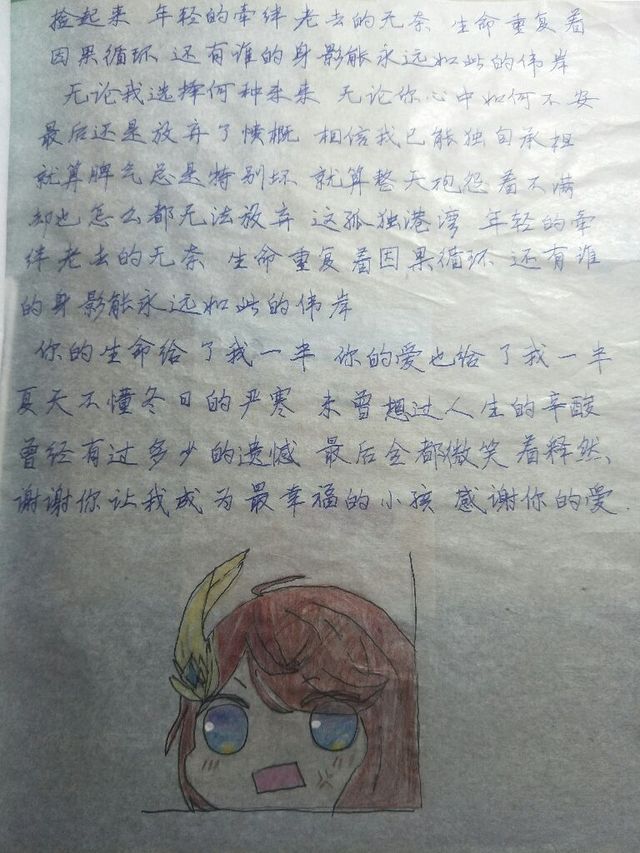 捡起来 年轻的牵绊 老去的无奈 生命重复着
因果循环 还有谁的身影能永远如此的伟岸
无论我选择何种未来 无论你心中如何不安
最后还是放弃了愤概 相信我已能独自承担
就算脾气总是特别坏 就算整天抱怨着不满
却也怎么都无法放弃 这孤独港湾 年轻的牵
绊 老去的无奈 生命重复着因果循环 还有谁
的身影能永远如此的伟岸
你的生命给了我一半 你的爱也给了我一半
夏天不懂冬日的严寒 未曾想过人生的辛酸
曾经有过多少的遗憾 最后全都微笑着释然、
谢谢你让我成为最幸福的小孩 感谢你的爱.